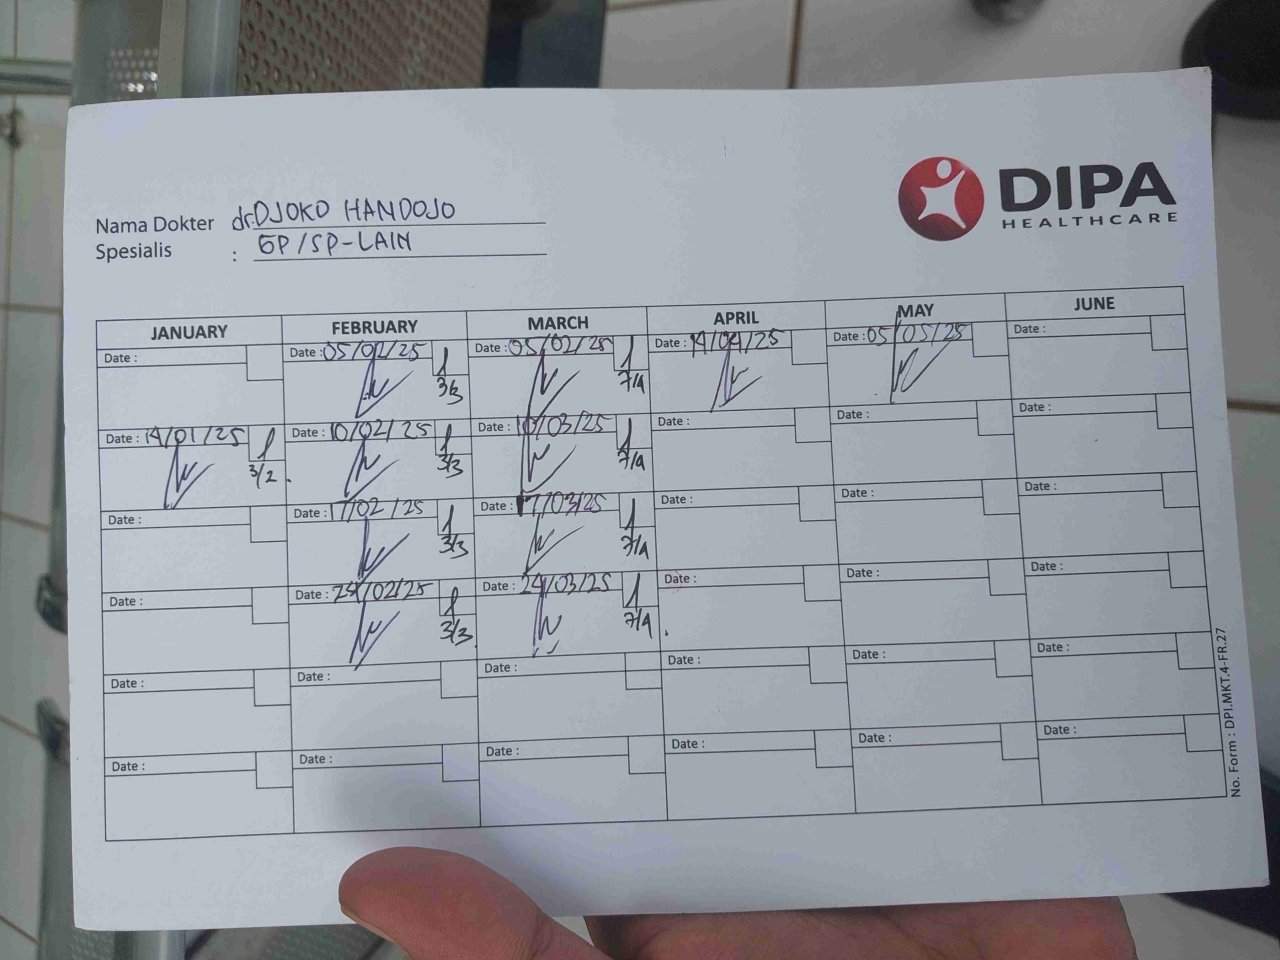 DIPA
HEALTHCARE
Nama Dokter dr. DJOKO HANDOJO
Spesialis : GP/SP-LAIN
JANUARY FEBRUARY MARCH APRIL MAY JUNE
Date : Date : 05/02/25 Date : 05/02/25 Date : 14/04/25 Date : 05/05/25 Date :
3/3 7/4
Date : 14/01/25 Date : 10/02/25 Date : 10/03/25 Date : Date : Date :
3/2. 3/3 7/4
Date : Date : 17/02/25 Date : 17/03/25 Date : Date : Date :
3/3 7/4
Date : Date : 24/02/25 Date : 24/03/25 Date : Date : Date :
3/3 7/4
Date : Date : Date : Date : Date : Date :
Date : Date : Date : Date : Date : Date :
No. Form : DPI.MKT.4-FR.27